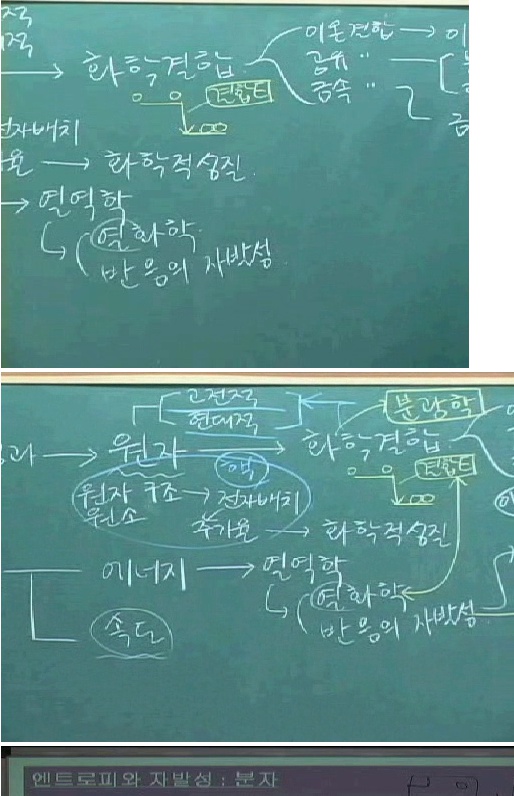 이온결합 → 이
→ 화학결합 공유 〃
금속 〃
결합E
전자배치
→ 화학적성질.
→ 열역학
열화학
반응의 자발성.
고전적
현대적
분광학
→ 원자 → 화학결합
핵
결합E
원자 구조 → 전자배치
원소 주기율 → 화학적성질
에너지 → 열역학
열화학
속도 반응의 자발성
엔트로피와 자발성 : 분자